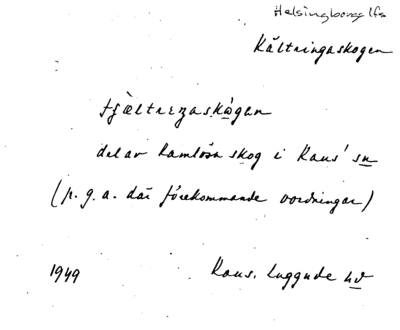 Helsingborgs lfs
Kältringaskogen
tjæltreŋaskɷ̀gen
del av Ramlösa skog i Raus' sn
(p.g.a. där förekommande oordningar)
1949 Raus. Luggude hd